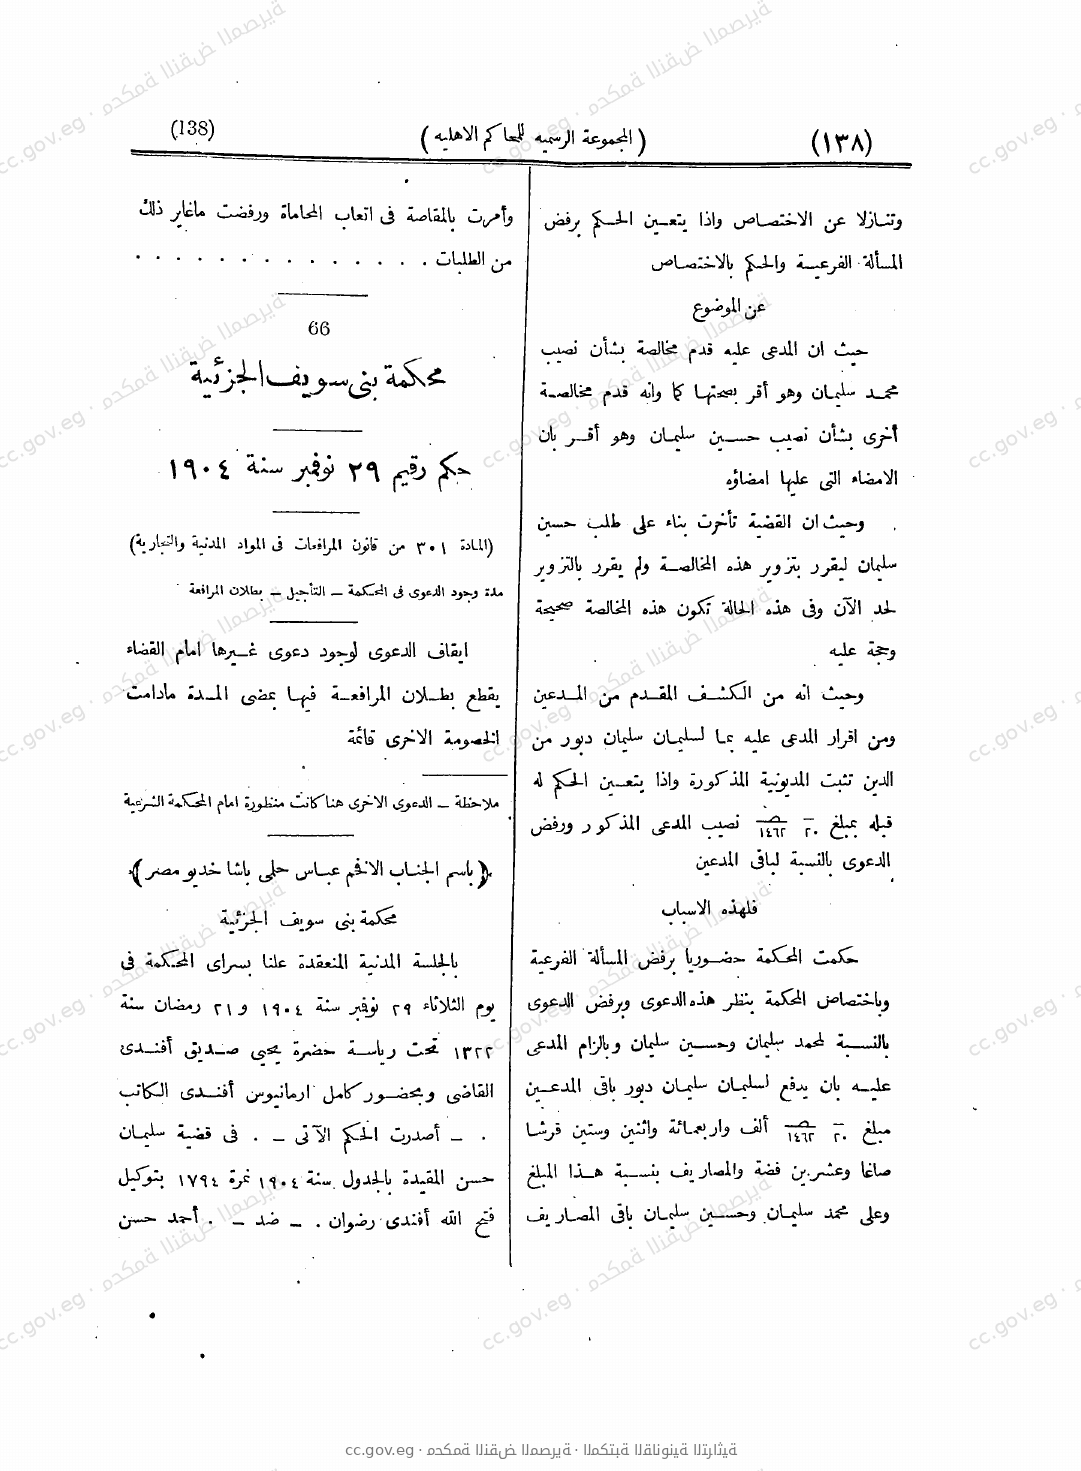 (١٣٨)
(المجموعة الرسميه للمحاكم الاهليه)
(138)
وتنازلا عن الاختصاص واذا يتعين الحكم برفض
المسألة الفرعية والحكم بالاختصاص
عن الموضوع
حيث ان المدعى عليه قدم مخالصة بشأن نصيب
محمد سليمان وهو أقر بصحتها كما وانه قدم مخالصة
أخرى بشأن نصيب حسين سليمان وهو أقر بان
الامضاء التى عليها امضاؤه
وحيث ان القضية تأخرت بناء على طلب حسين
سليمان ليقرر بتزوير هذه المخالصة ولم يقرر بالتزوير
لحد الآن وفى هذه الحالة تكون هذه المخالصة صحيحة
وحجة عليه
وحيث انه من الكشف المقدم من المدعين
ومن اقرار المدعى عليه بما لسليمان سليمان دبور من
الدين تثبت المديونية المذكورة واذا يتعين الحكم له
قبله بمبلغ ٢٠ ١٤٦٢ نصيب المدعى المذكور ورفض
الدعوى بالنسبة لباقى المدعين
فلهذه الاسباب
حكمت المحكمة حضوريا برفض المسألة الفرعية
وباختصاص المحكمة بنظر هذه الدعوى وبرفض الدعوى
بالنسبة لمحمد سليمان وحسين سليمان وبالزام المدعى
عليه بان يدفع لسليمان سليمان دبور باقى المدعين
مبلغ ٢٠ ١٤٦٢ ألف واربعمائة واثنين وستين قرشا
صاغا وعشرين فضة والمصاريف بنسبة هذا المبلغ
وعلى محمد سليمان وحسين سليمان باقى المصاريف
وأمرت بالمقاصة فى اتعاب المحاماة ورفضت ماغاير ذلك
من الطلبات . . . . . . . . . . . .
66
محكمة بنى سويف الجزئية
حكم رقيم ٢٩ نوفمبر سنة ١٩٠٤
(المادة ٣٠١ من قانون المرافعات فى المواد المدنية والتجارية)
مدة وجود الدعوى فى المحكمة – التأجيل – بطلان المرافعة
ايقاف الدعوى لوجود دعوى غيرها امام القضاء
يقطع بطلان المرافعة فيها بمضى المدة مادامت
الخصومة الاخرى قائمة
ملاحظة – الدعوى الاخرى هنا كانت منظورة امام المحكمة الشرعية
(باسم الجناب الافخم عباس حلمى باشا خديو مصر)
محكمة بنى سويف الجزئية
بالجلسة المدنية المنعقدة علنا بسراى المحكمة فى
يوم الثلاثاء ٢٩ نوفمبر سنة ١٩٠٤ و٢١ رمضان سنة
١٣٢٢ تحت رياسة حضرة يحيى صديق أفندى
القاضى وبحضور كامل ارمانيوس أفندى الكاتب
. – أصدرت الحكم الآتى – . فى قضية سليمان
حسن المقيدة بالجدول سنة ١٩٠٤ نمرة ١٧٩٤ بتوكيل
فتح الله أفندى رضوان . – ضد – . أحمد حسن
cc.gov.eg · محكمة النقض المصرية · المكتبة القانونية التراثية